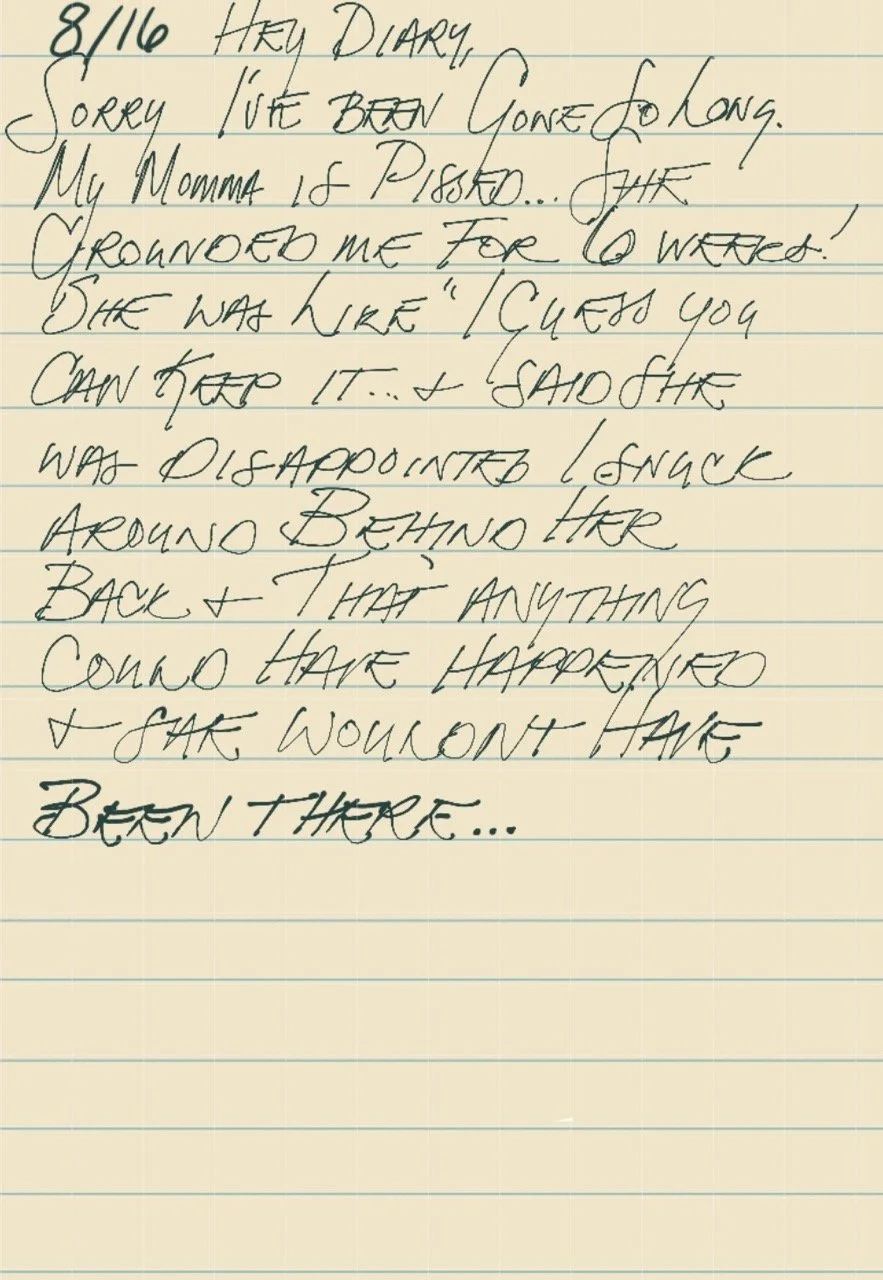 8/16 HEY DIARY,
SORRY I'VE BEEN GONE SO LONG.
MY MOMMA IS PISSED... SHE
GROUNDED ME FOR 6 WEEKS!
SHE WAS LIKE "I GUESS YOU
CAN KEEP IT... & SAID SHE
WAS DISAPPOINTED I SNUCK
AROUND BEHIND HER
BACK & THAT ANYTHING
COULD HAVE HAPPENED
& SHE WOULDN'T HAVE
BEEN THERE...